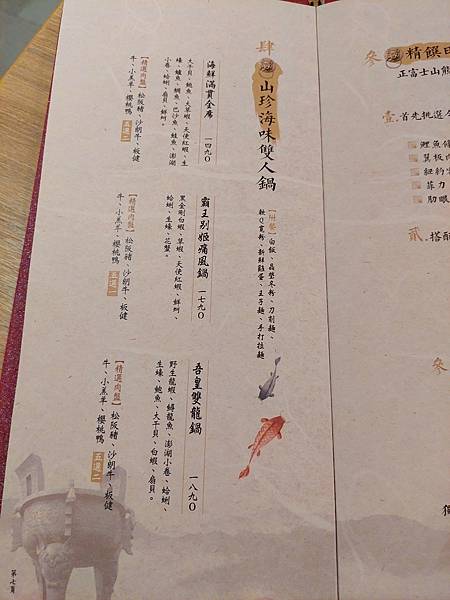 肆 山珍海味雙人鍋
【附餐】白飯、蟲墊冬粉、刀削麵、
軟Q寬粉、新鮮雞蛋、王子麵、手打拉麵
海鮮滿貫全席 一四九〇
大干貝、鮑魚、大草蝦、天使紅蝦、生
蠔、鱸魚、鯛魚、巴沙魚、鮭魚、澎湖
小卷、蛤蜊、扇貝、鮮蚵。
【精選肉盤】松阪豬、沙朗牛、板健
牛、小羔羊、櫻桃鴨 五選二
霸王別姬痛風鍋 一七九〇
黑金剛白蝦、草蝦、天使紅蝦、鮮蚵、
蛤蜊、生蠔、花蟹。
【精選肉盤】松阪豬、沙朗牛、板健
牛、小羔羊、櫻桃鴨 五選一
吾皇雙龍鍋 一八九〇
野生龍蝦、鱘龍魚、澎湖小卷、蛤蜊、
生蠔、鮑魚、大干貝、白蝦、扇貝。
【精選肉盤】松阪豬、沙朗牛、板健
牛、小羔羊、櫻桃鴨 五選二
第七頁
參 精饌
正富士山熊
壹.首先挑選
鯉魚
翼板
紐約
菲力
肋眼
貳.搭配
參
獨